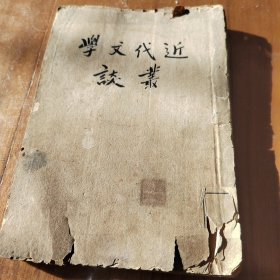 近代文學
叢談